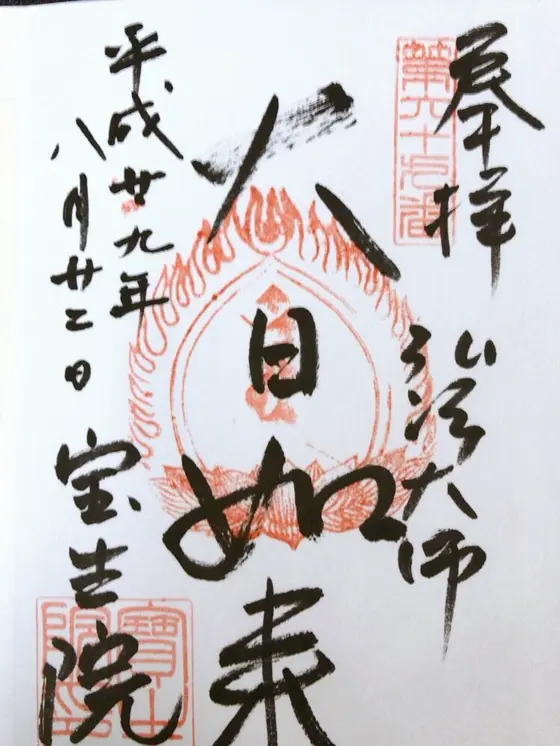 奉拝
弘法大師
大日如来
平成廿九年
八月廿二日
宝生院
寶生
院印